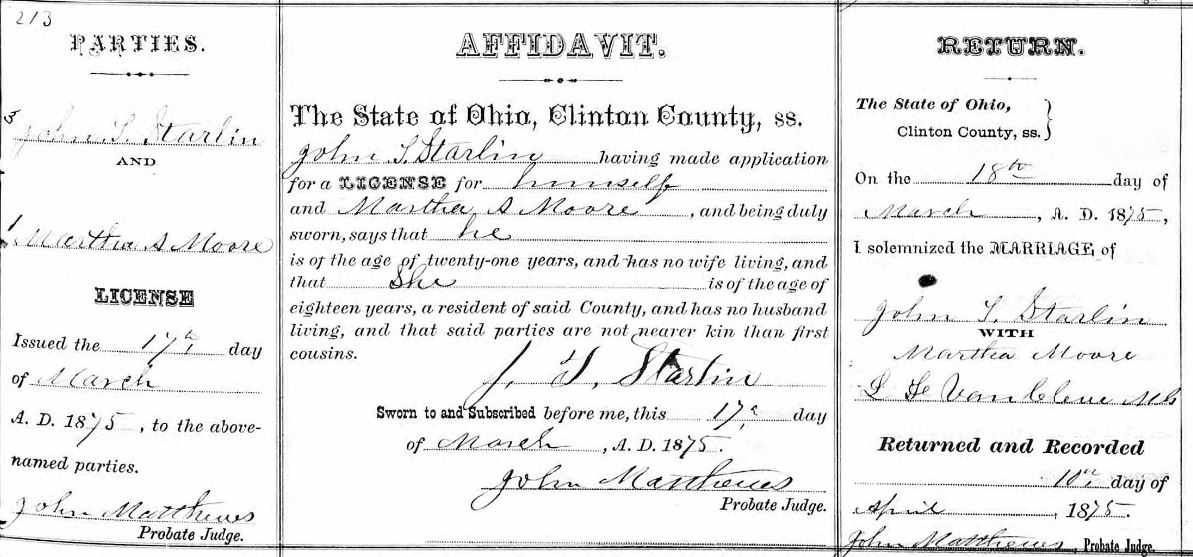 213
PARTIES.
John T. Starlin
AND
Martha S Moore
LICENSE
Issued the 17th day
of March
A. D. 1875, to the above-
named parties.
John Matthews
Probate Judge.
AFFIDAVIT.
The State of Ohio, Clinton County, ss.
John T. Starlin having made application
for a LICENSE for himself
and Martha S Moore, and being duly
sworn, says that he
is of the age of twenty-one years, and has no wife living, and
that She is of the age of
eighteen years, a resident of said County, and has no husband
living, and that said parties are not nearer kin than first
cousins.
J. T. Starlin
Sworn to and Subscribed before me, this 17th day
of March, A. D. 1875.
John Matthews
Probate Judge.
RETURN.
The State of Ohio,
Clinton County, ss.
On the 18th day of
March, A. D. 1875,
I solemnized the MARRIAGE, of
John T. Starlin
WITH
Martha Moore
Van Cleve
Returned and Recorded
10th day of
April, 1875.
John Matthews Probate Judge.